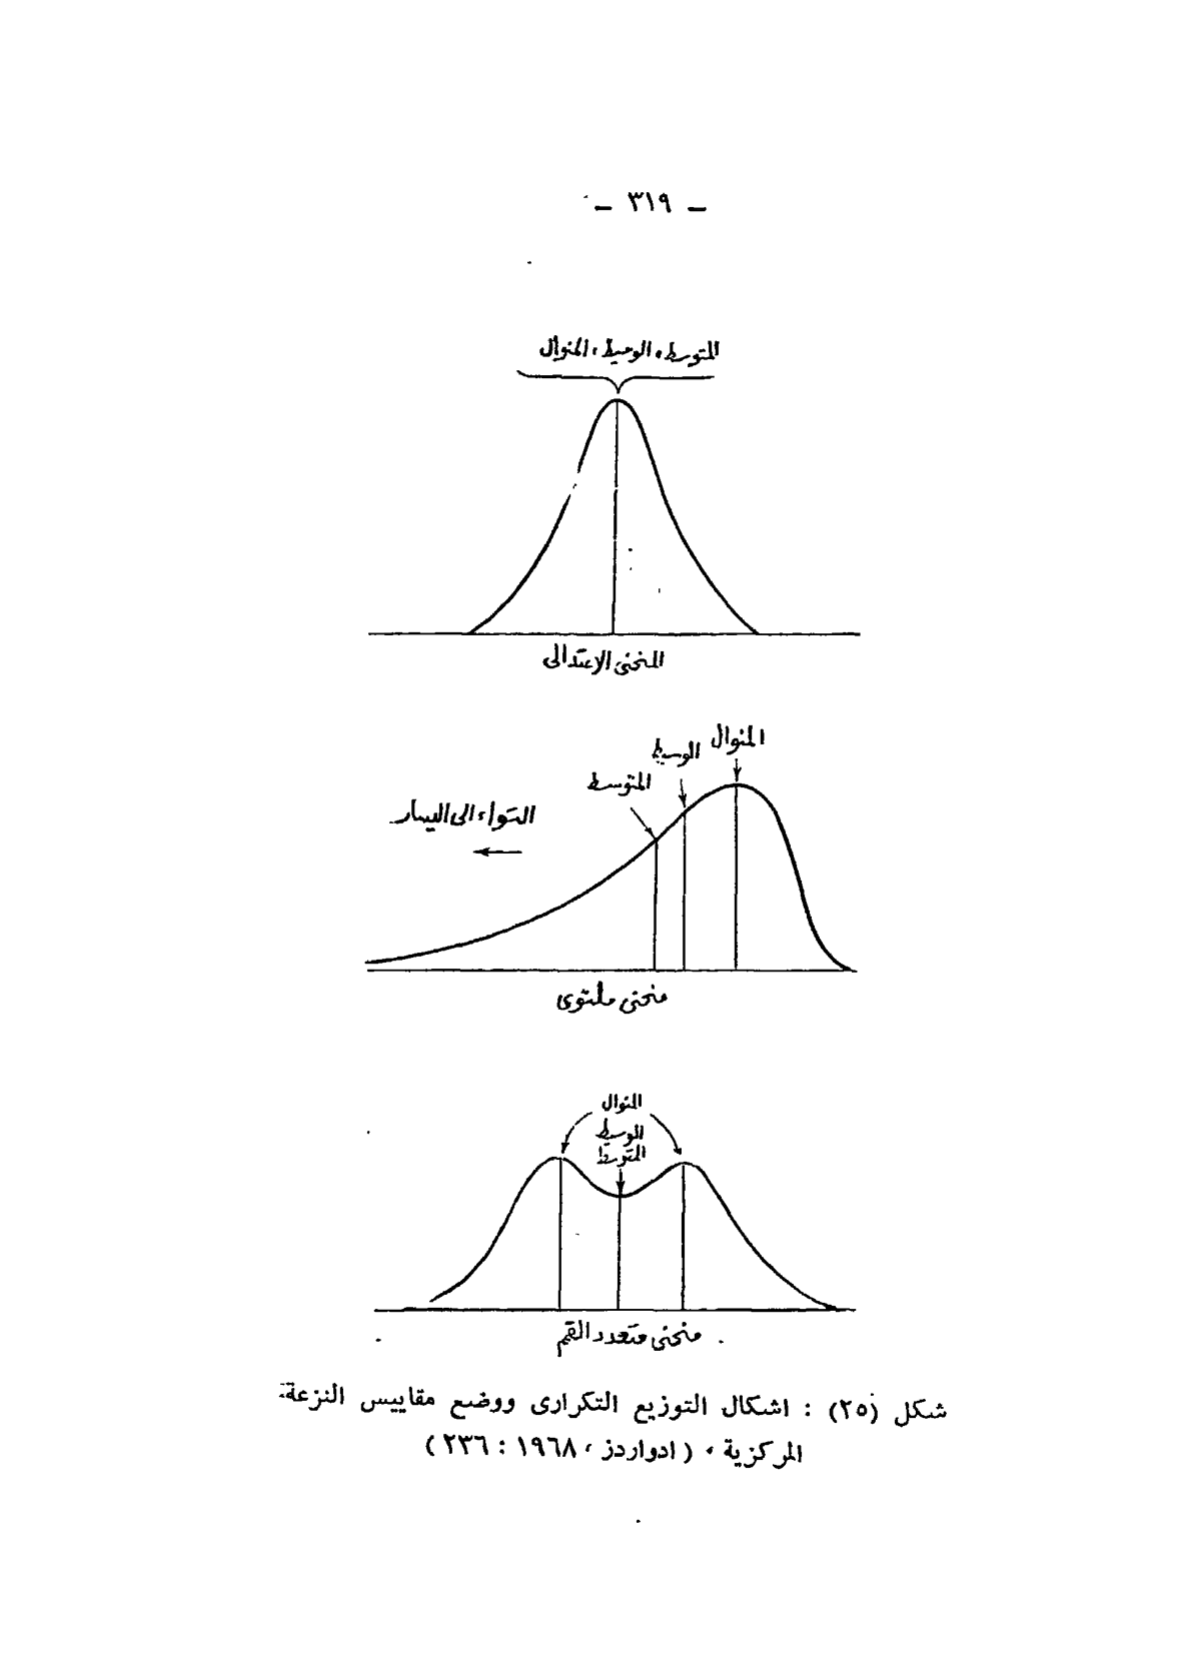 – ٣١٩ –
المتوسط، الوسيط، المنوال
المنحنى الاعتدالى
المنوال
الوسيط
المتوسط
التواء الى اليسار
منحنى ملتوى
المنوال
الوسيط
المتوسط
منحنى متعدد القمم
شكل (٢٥) : اشكال التوزيع التكرارى ووضع مقاييس النزعة
المركزية ، ( ادواردز ، ١٩٦٨ : ٢٣٦ )